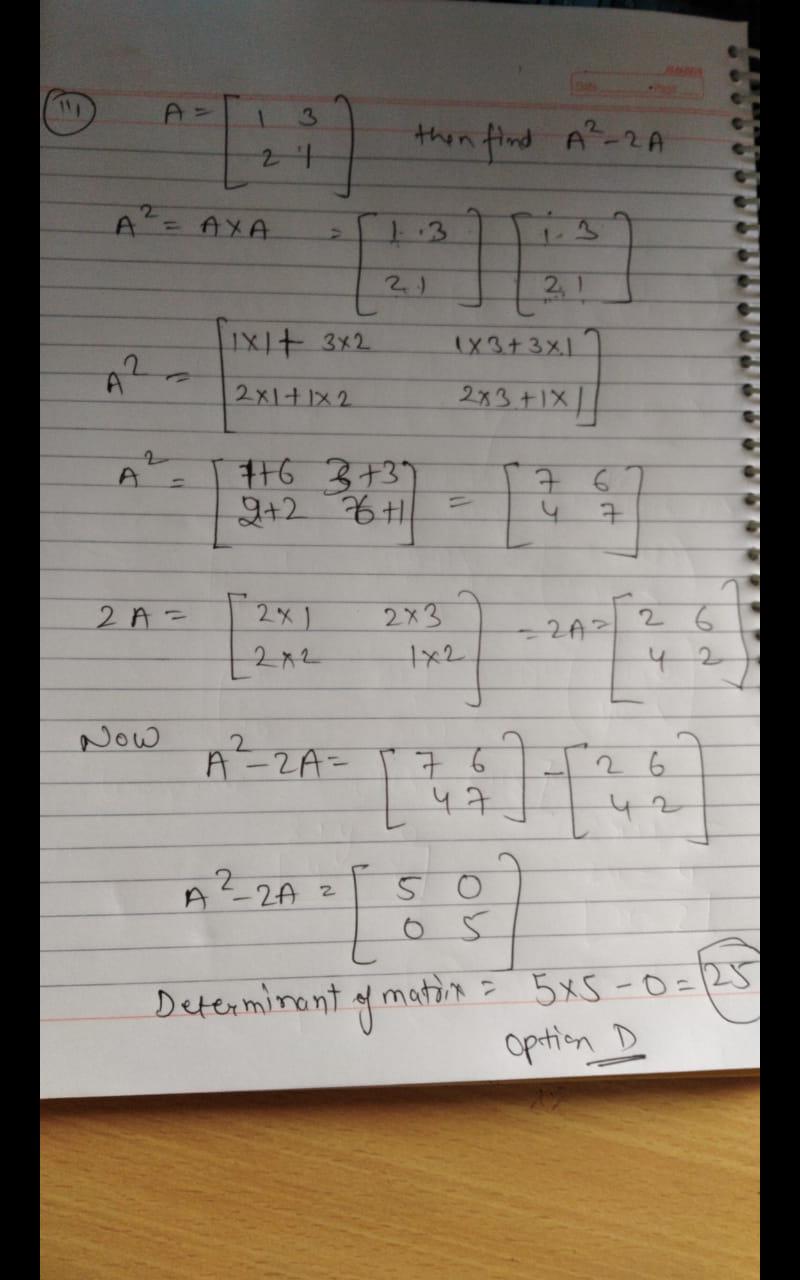 (iii) A = [ 1 3 then find A² - 2A
2 1 ]
A² = A × A = [ 1 . 3 [ 1 . 3
2 , 1 ] 2 , 1 ]
A² = [ 1×1 + 3×2 1×3 + 3×1
2×1 + 1×2 2×3 + 1×1 ]
A² = [ 1+6 3+3 = [ 7 6
2+2 6+1 ] 4 7 ]
2A = [ 2×1 2×3 = 2A = [ 2 6
2×2 1×2 ] 4 2 ]
Now A² - 2A = [ 7 6 - [ 2 6
4 7 ] 4 2 ]
A² - 2A = [ 5 0
0 5 ]
Determinant of matrix = 5×5 - 0 = 25
Option D